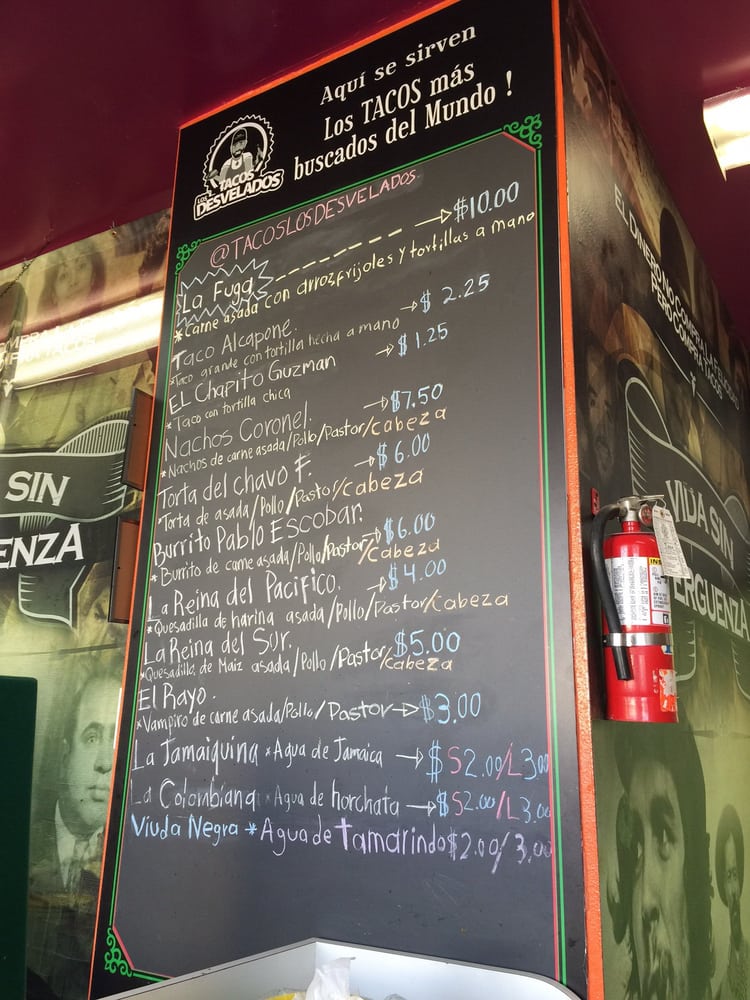 Aquí se sirven
Los TACOS más
buscados del Mundo !
LOS
TACOS
DESVELADOS
@TACOSLOSDESVELADOS.
La Fuga $10.00
*Carne asada con arroz, frijoles y tortillas a mano
Taco Alcapone. $ 2.25
*Taco grande con tortilla hecha a mano
EL Chapito Guzman $1.25
*Taco con tortilla chica
Nachos Coronel. $7.50
*Nachos de carne asada/Pollo/Pastor/cabeza
Torta del chavo F. $6.00
*Torta de asada/Pollo/Pastor/cabeza
Burrito Pablo Escobar. $6.00
*Burrito de carne asada/Pollo/Pastor/cabeza
La Reina del Pacifico. $4.00
*Quesadilla de harina asada/Pollo/Pastor/cabeza
La Reina del Sur. $5.00
*Quesadilla de Maiz asada/Pollo/Pastor/cabeza
El Rayo.
*Vampiro de carne asada/Pollo/Pastor $3.00
La Jamaiquina *Agua de Jamaica $S2.00/L3.00
La Colombiana *Agua de horchata $S2.00/L3.00
Viuda Negra *Agua de tamarindo $2.00/3.00
EL DINERO NO COMPRA LA FELICIDAD
PERO COMPRA TACOS
VIDA SIN
VERGUENZA
SIN
ENZA